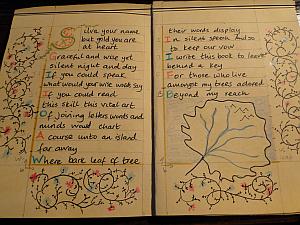 Silver your name
but gold you are
at heart
Graceful and wise yet
silent night and day
If you could speak
what would your wise work say
If you could read
this skill this vital art
Of joining letters words and
minds would chart
A course to an island
far away
Where bare leaf of tree
their words display
In silent speech And so
to keep our vow
I write this book to leave
behind a key
For those who live
amongst my trees adored
Beyond my reach